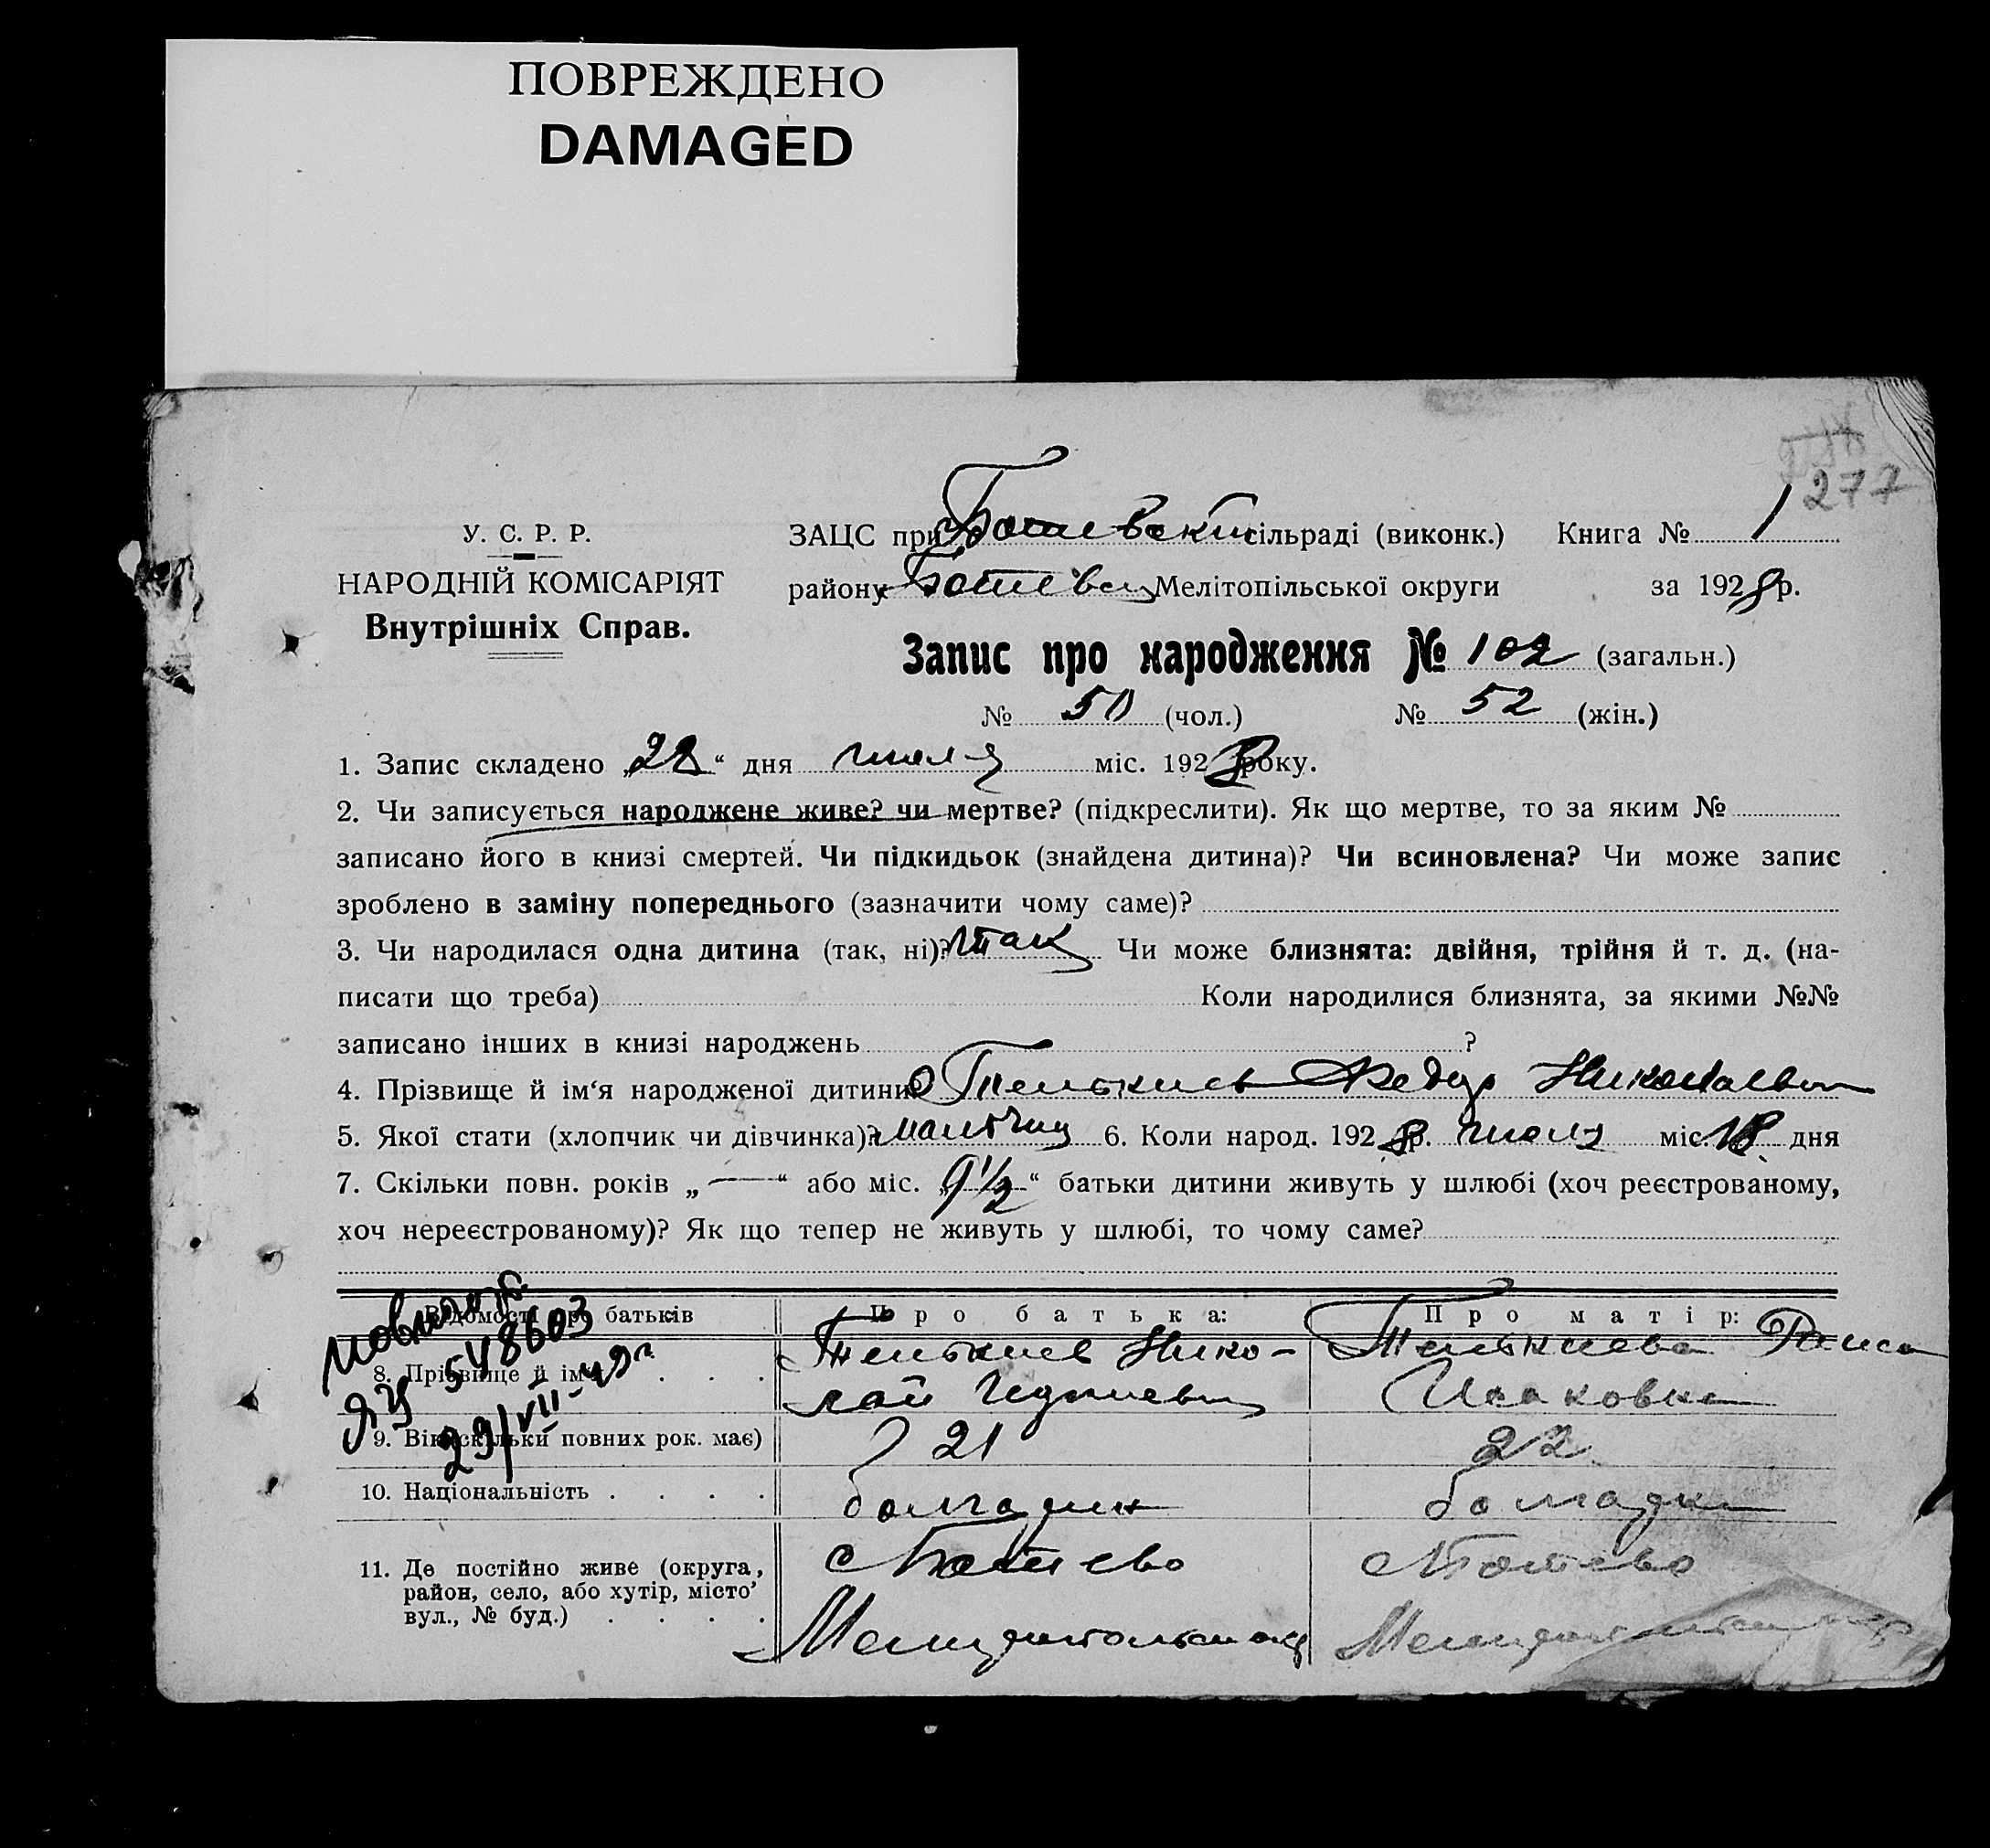 ПОВРЕЖДЕНО
DAMAGED
277
У. С. Р. Р.
НАРОДНІЙ КОМІСАРІЯТ
Внутрішніх Справ.
ЗАЦС при Ботевской сільраді (виконк.) Книга № 1
району Мелітопільської округи за 1928 р.
Запис про народження № 102 (загальн.)
№ 50 (чол.) № 52 (жін.)
1. Запис складено „28“ дня июля міс. 1928 року.
2. Чи записується народжене живе? чи мертве? (підкреслити). Як що мертве, то за яким №
записано його в книзі смертей. Чи підкидьок (знайдена дитина)? Чи всиновлена? Чи може запис
зроблено в заміну попереднього (зазначити чому саме)?
3. Чи народилася одна дитина (так, ні)? так Чи може близнята: двійня, трійня й т. д. (на-
писати що треба) Коли народилися близнята, за якими №№
записано інших в книзі народжень ?
4. Прізвище й ім‘я народженої дитини Федор Николаевич
5. Якої стати (хлопчик чи дівчинка)? мальчик 6. Коли народ. 1928 р. июля міс. 18 дня
7. Скільки повн. років „—“ або міс. „9 1/2“ батьки дитини живуть у шлюбі (хоч реєстрованому,
хоч нереєстрованому)? Як що тепер не живуть у шлюбі, то чому саме?
Відомості про батьків Про батька: Про матір:
ЯЦ 548603
29/VII-49г
8. Прізвище й ім‘я . . . Нико-
лай Раиса
Исаковна
9. Вік (скільки повних рок. має) 21 22
10. Національність . . . . болгарин болгарка
11. Де постійно живе (округа,
район, село, або хутір, місто’
вул., № буд.) . . . .
с Ботево с Ботево